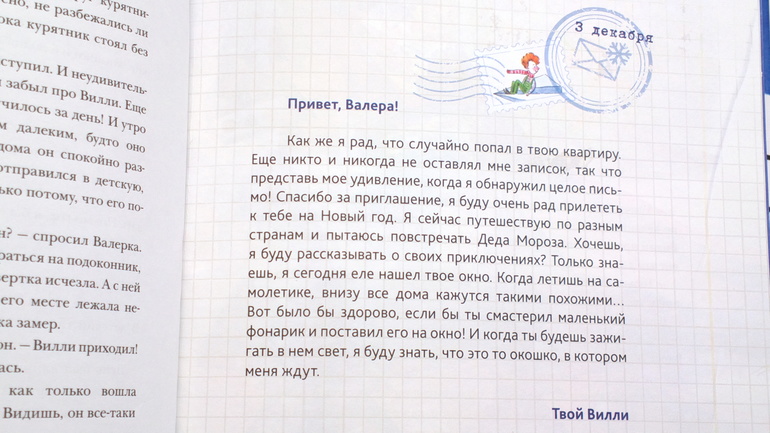 курятни-
но, не разбежались ли
ока курятник стоял без
ступил. И неудивитель-
забыл про Вилли. Еще
чилось за день! И утро
м далеким, будто оно
дома он спокойно раз-
отправился в детскую,
ько потому, что его по-
н? — спросил Валерка.
раться на подоконник,
вертка исчезла. А с ней
его месте лежала не-
ка замер.
он. — Вилли приходил!
ась.
как только вошла
Видишь, он все-таки
3 декабря
Привет, Валера!
Как же я рад, что случайно попал в твою квартиру.
Еще никто и никогда не оставлял мне записок, так что
представь мое удивление, когда я обнаружил целое пись-
мо! Спасибо за приглашение, я буду очень рад прилететь
к тебе на Новый год. Я сейчас путешествую по разным
странам и пытаюсь повстречать Деда Мороза. Хочешь,
я буду рассказывать о своих приключениях? Только зна-
ешь, я сегодня еле нашел твое окно. Когда летишь на са-
молетике, внизу все дома кажутся такими похожими...
Вот было бы здорово, если бы ты смастерил маленький
фонарик и поставил его на окно! И когда ты будешь зажи-
гать в нем свет, я буду знать, что это то окошко, в котором
меня ждут.
Твой Вилли